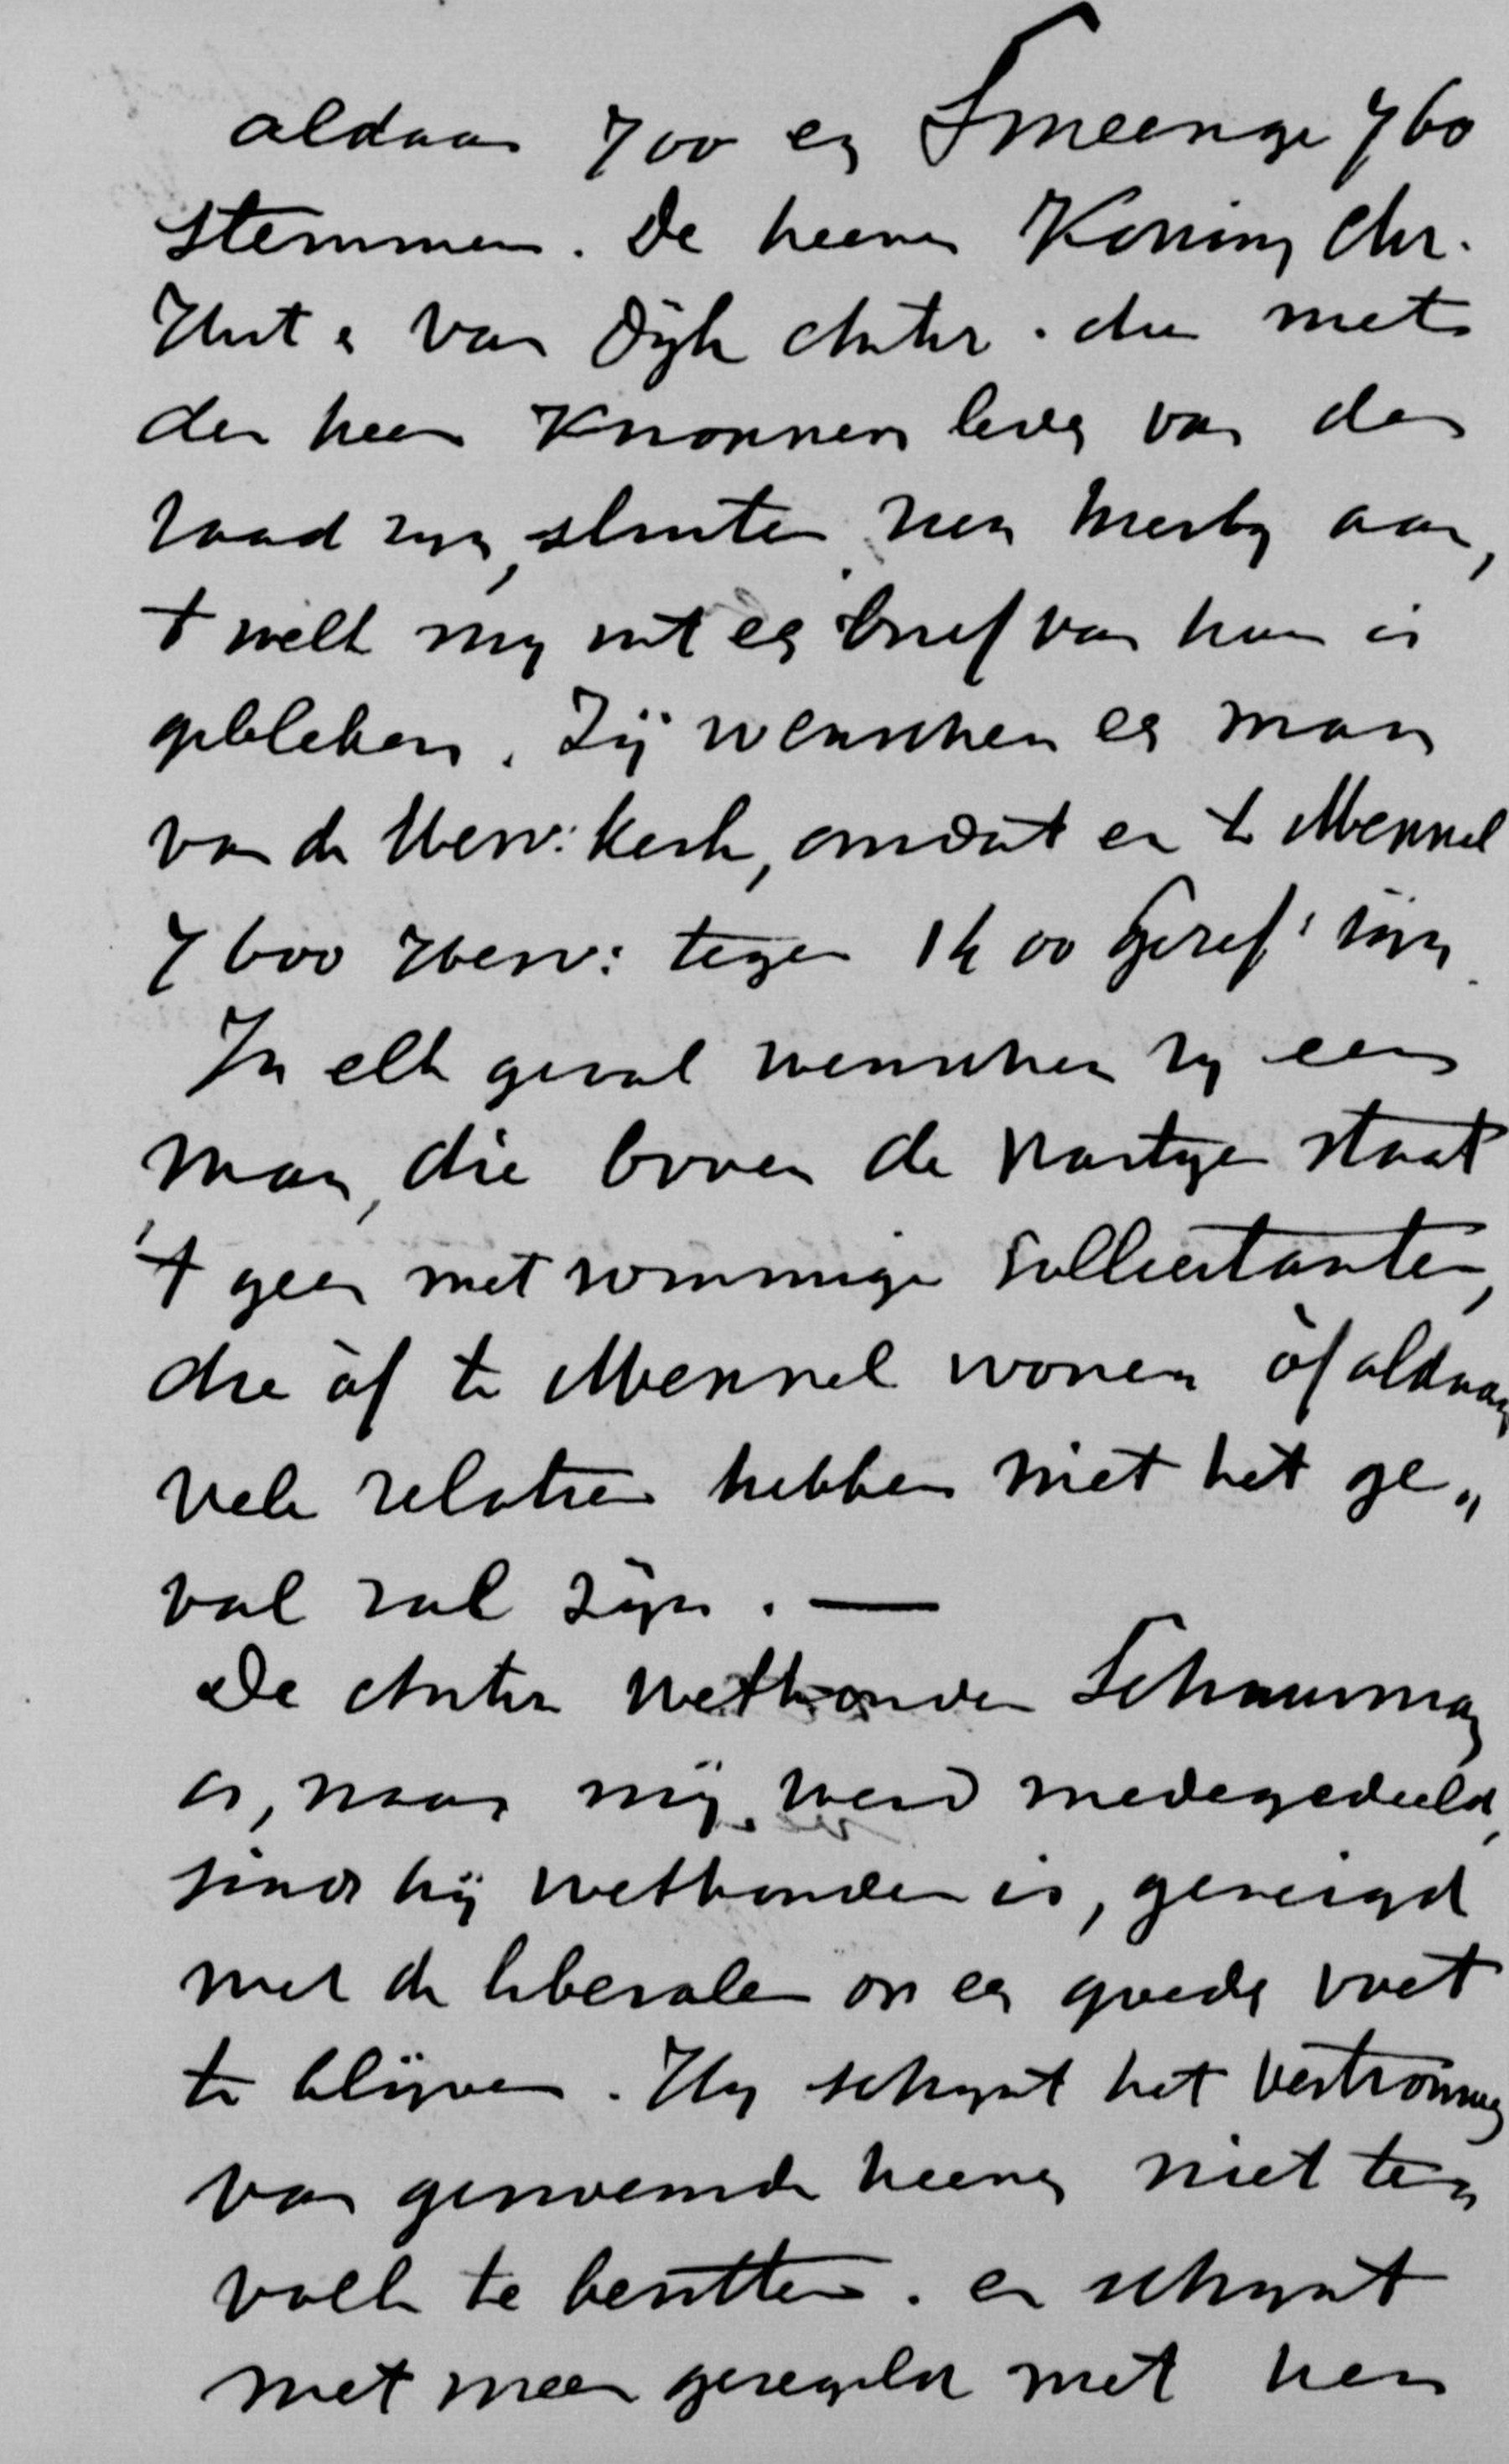 aldaar 700 en Smeenge 760
stemmen. De heeren Koning Chr.
Hist & van Dijk Antir. die met
den heer Knoppers leden van den
raad zijn, sluiten zich hierbij aan,
't welk mij uit een brief van hun is
gebleken. Zij wenschen een man
van de Herv: Kerk, omdat er te Meppel
7600 Herv: tegen 1400 Geref: zijn.
In elk geval wenschen zij een
man, die boven de partijen staat
't geen met sommige sollicitanten,
die òf te Meppel wonen òf aldaar
vele relatien hebben niet het ge„
val zal zijn. —
De Antir wethouder Schuurman
is, naar mij werd medegedeeld,
sinds hij wethouder is, geneigd
met de liberalen op een goeden voet
te blijven. Hij schijnt het vertrouwen
van genoemde heeren niet ten
volle te bezitten. er schijnt
niet meer geregeld met hen